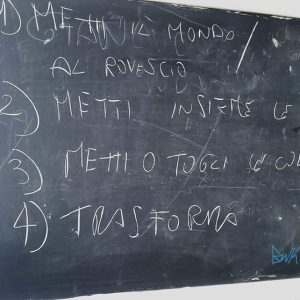 1) METTI IL MONDO
AL ROVESCIO
2) METTI INSIEME LE
3) METTI O TOGLI LE
4) TRASFORMA